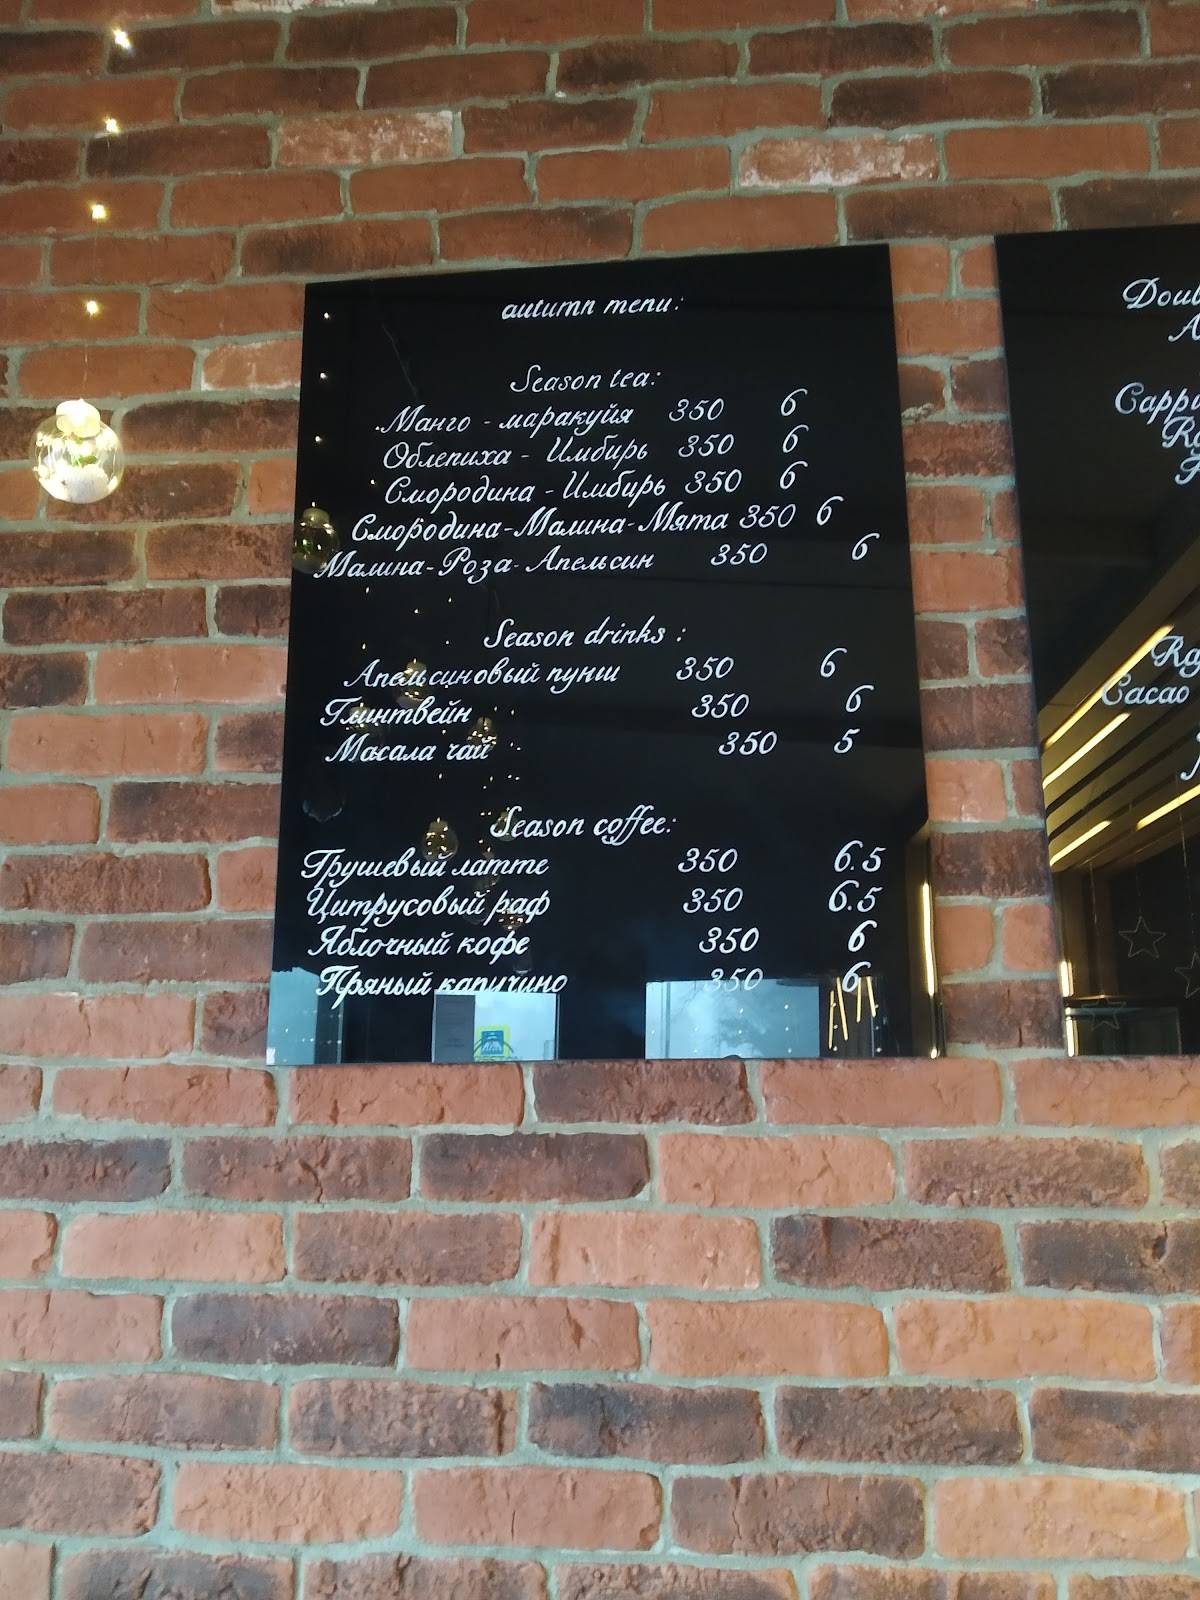 autumn menu:
Season tea:
Манго - маракуйя 350 6
Облепиха - Имбирь 350 6
Смородина - Имбирь 350 6
Смородина-Малина-Мята 350 6
Малина-Роза-Апельсин 350 6
Season drinks :
Апельсиновый пунш 350 6
Глинтвейн 350 6
Масала чай 350 5
Season coffee:
Грушевый латте 350 6.5
Цитрусовый раф 350 6.5
Яблочный кофе 350 6
Пряный капучино 350 6
Cacao